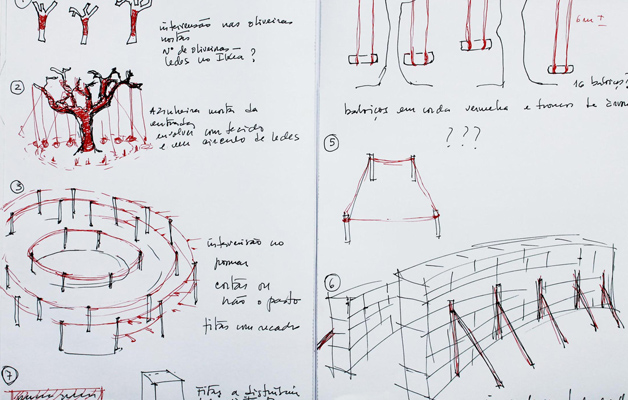 intervensão nas oliveiras
mortas
Nº de oliveiras
ledes no Ikea ?
②
Azinheira morta da
entrada
envolver com tecido
e um circulo de ledes
③
intervensão no
pomar
cortar ou
não o pasto
fitas com recados
⑦
Fitas a distribuir
6 cm ±
16 baloiços
baloiços em corda vermelha e troncos de
???
⑤
⑥